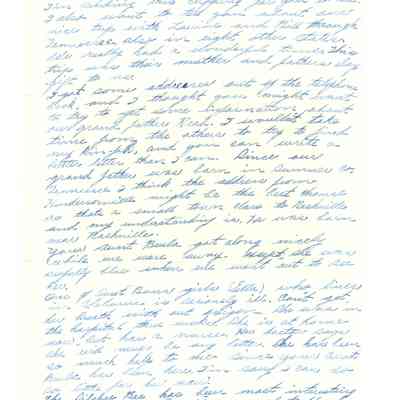 I'm sending this clipping for your
I also want to tell you about our
nice trip with Louise and Bill through
Tennessee also in eight other states.
We really had a wonderful time. This
trip was their mother and fathers day
gift to us.
I got some addresses out of the telephone
book, and I thought you might want
to try to get some information about
our grand father Rich. I wouldn't take
time from the others to try to find
my kinfolks, and you can write a
better letter than I can. Since our
grand father was born in Sumner Co
Tennessee I think the address from
Hendersonville might be the best chance
as thats a small town close to Nashville
and my understanding is, he was born
near Nashville.
Your Aunt Beula got along nicely
while we were away. Except she was
awfully blue when we went out to see
her.
One of Aunt girls (Lella) who lives
in is seriously ill. Can't get
her breath with out oxygen. She was in
the hospital three weeks. She is at home
now, but has a nurse. Her doctor says
she will never be any better. She has been
so much help to me since your Aunt
Beula has been here. I'm sorry I can do
so little for her now.
The has been most interesting